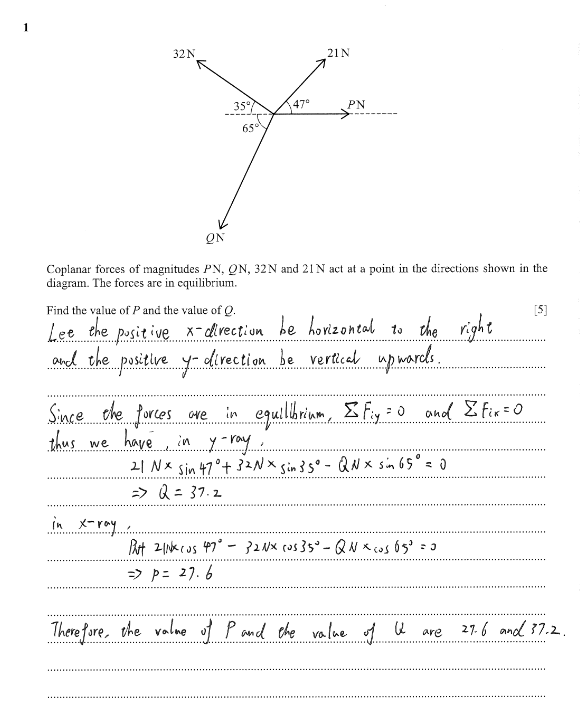 1
32 N
21 N
35°
47°
P N
65°
Q N
Coplanar forces of magnitudes P N, Q N, 32 N and 21 N act at a point in the directions shown in the
diagram. The forces are in equilibrium.
Find the value of P and the value of Q. [5]
Let the positive x-direction be horizontal to the right
and the positive y-direction be vertical upwards.
Since the forces are in equilibrium, ΣFiy = 0 and ΣFix = 0
thus we have, in y-ray,
21 N× sin 47° + 32N× sin 35° - QN× sin 65° = 0
=> Q = 37.2
in x-ray,
21N×cos 47° - 32N× cos 35° - QN×cos 65° = 0
=> P = 27.6
Therefore, the value of P and the value of Q are 27.6 and 37.2.